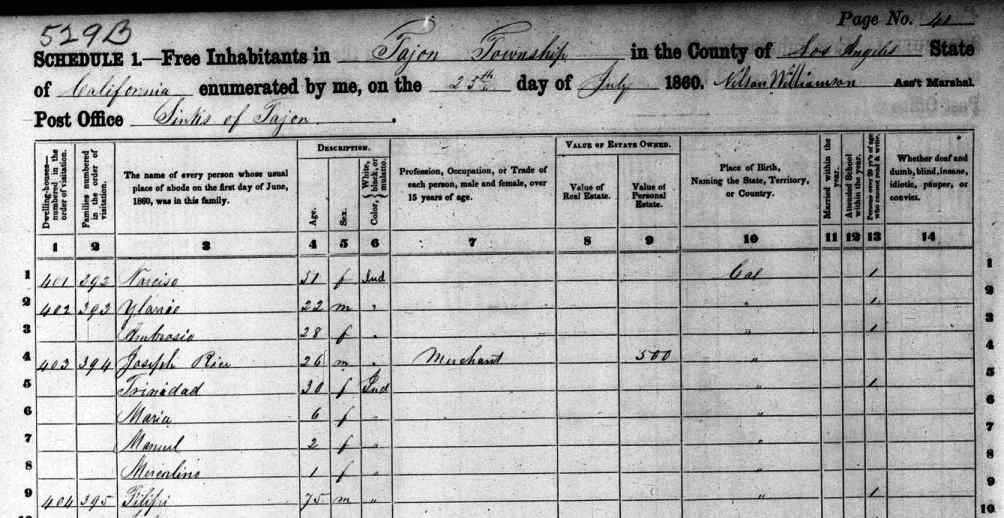 529B
Page No. 41
SCHEDULE 1.—Free Inhabitants in Tajon Township in the County of Los Angeles State
of California enumerated by me, on the 25th day of July 1860. Nelson Williamson Ass't Marshal.
Post Office Sinks of Tajon.
Dwelling-houses—numbered in the order of visitation.
Families numbered in the order of visitation.
The name of every person whose usual place of abode on the first day of June, 1860, was in this family.
DESCRIPTION.
Age.
Sex.
Color, White, black, or mulatto.
Profession, Occupation, or Trade of each person, male and female, over 15 years of age.
VALUE OF ESTATE OWNED.
Value of Real Estate.
Value of Personal Estate.
Place of Birth, Naming the State, Territory, or Country.
Married within the year.
Attended School within the year.
Persons over 20 y'rs of age who cannot read & write.
Whether deaf and dumb, blind, insane, idiotic, pauper, or convict.
1 2 3 4 5 6 7 8 9 10 11 12 13 14
1 401 392 Narciso 51 f Ind Cal 1 1
2 402 393 Ylario 22 m " " 1 2
3 Ambrosio 28 f " " 1 3
4 403 394 Joseph Rice 26 m " Merchant 500 " 4
5 Trinidad 30 f Ind " 1 5
6 Maria 6 f " " 6
7 Manuel 2 f " " 7
8 1 f " " 8
9 404 395 75 m " " 1 9
10